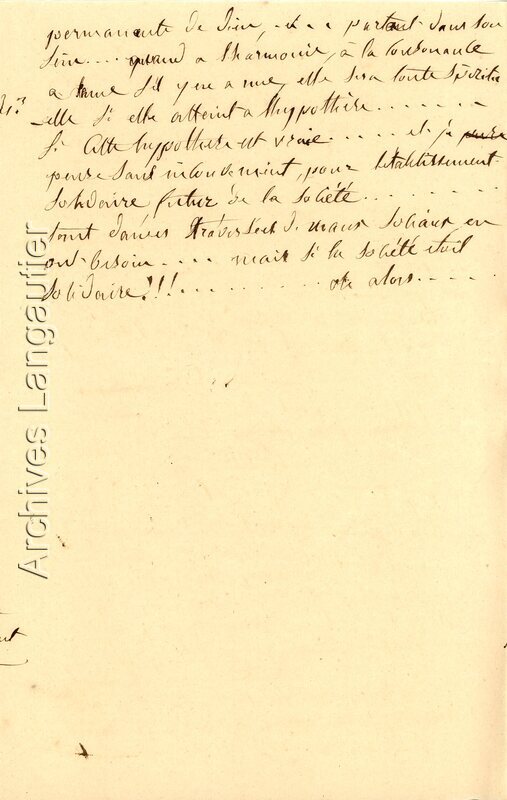 permanente de Dieu, et a partout dans son
sein .... quand a l'harmonie, à la consonante
a s'il y en a une, elle sera toute
elle si elle atteint a l'hypothèse .......
Si cette hypothèse est vraie ..... et je
pense sans inconvénient, pour l'établissement
solidaire futur de la société .......
sont d'avis de maux sociaux, en
ont besoin .... mais si la société était
solidaire!!! ........ oh alors .....
Archives Langautier